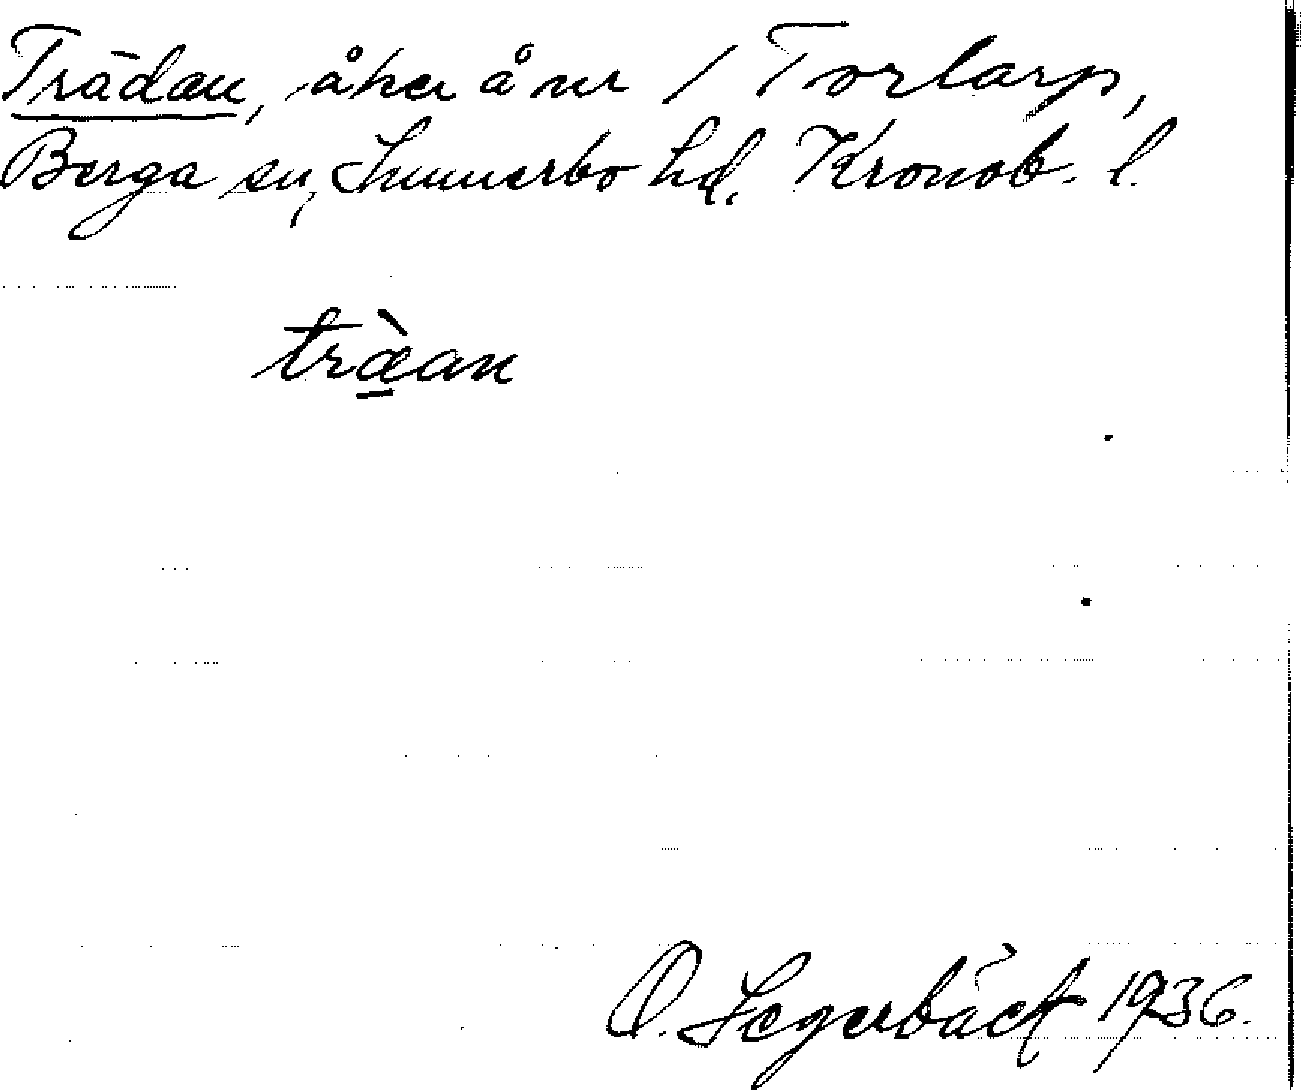 Trädan, åker å nr 1 Torlarp,
Berga sn, Sunnerbo hd. Kronob. l.
træ̀an
O. Segerbäck 1936.